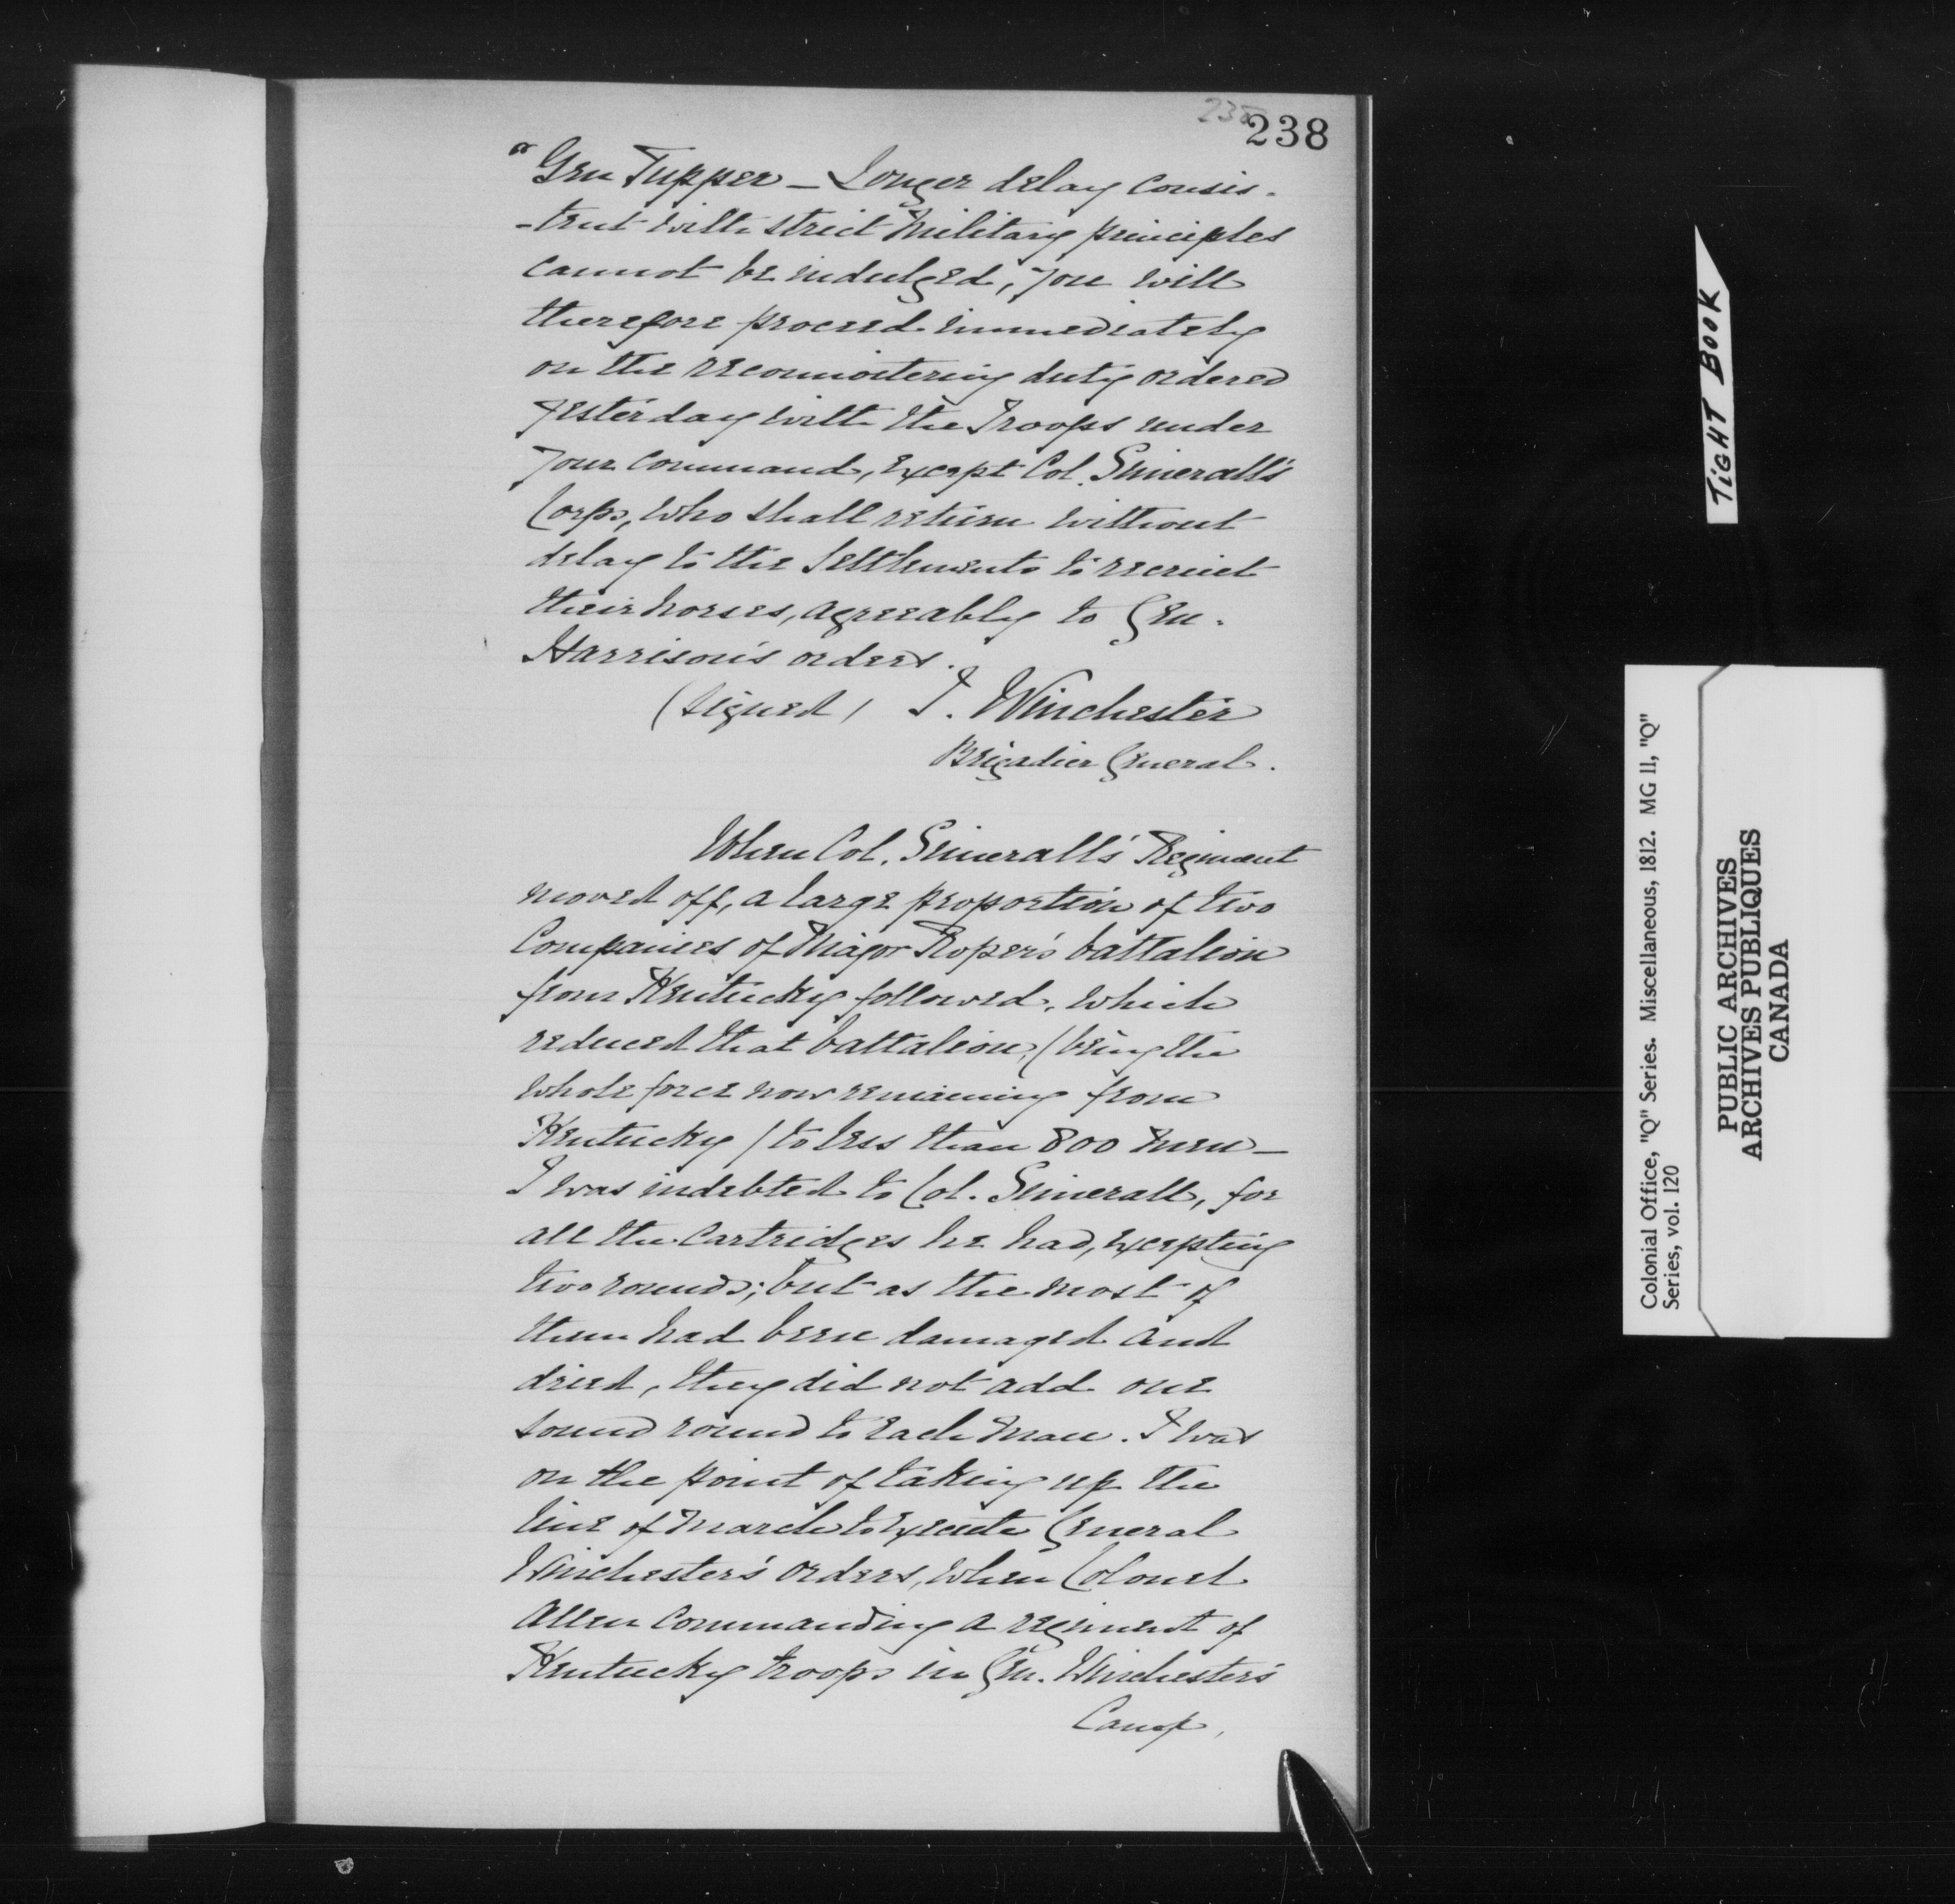 238
238
"Gen Tupper – Longer delay consis-
-tent with strict Military principles
cannot be indulged, you will
therefore proceed immediately
on the reconnoitering duty ordered
yesterday with the Troops under
your command, except Col. Simerall's
Corps, who shall return without
delay to the Settlements to recruit
their horses, agreeably to Gen.
Harrison's orders.
(Signed) J. Winchester
Brigadier General.
When Col. Simerall's Regiment
moved off, a large proportion of two
Companies of Major Roper's battalion
from Kentucky followed, which
reduced that battalion, (being the
whole force now remaining from
Kentucky) to less than 300 men –
I was indebted to Col. Simerall, for
all the cartridges he had, excepting
two rounds; but as the most of
them had been damaged and
dried, they did not add one
sound round to each man. I was
on the point of taking up the
line of march to execute General
Winchester's orders, when Colonel
Allen commanding a regiment of
Kentucky troops in Gen. Winchester's
Camp,
TIGHT BOOK
Colonial Office, "Q" Series. Miscellaneous, 1812. MG 11, "Q"
Series, vol. 120
PUBLIC ARCHIVES
ARCHIVES PUBLIQUES
CANADA